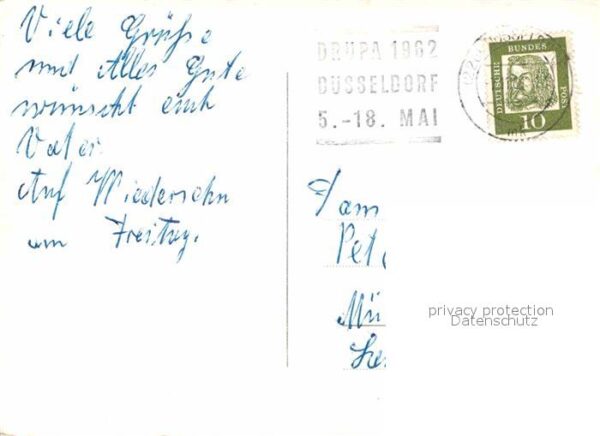 Viele Grüße
und Alles Gute
wünscht euch
Vater
Auf Wiedersehn
am Freitag.
DRUPA 1962
DÜSSELDORF
5.-18. MAI
DEUTSCHE
BUNDES
POST
10
Fam
Pet
Mü
privacy protection
Datenschutz